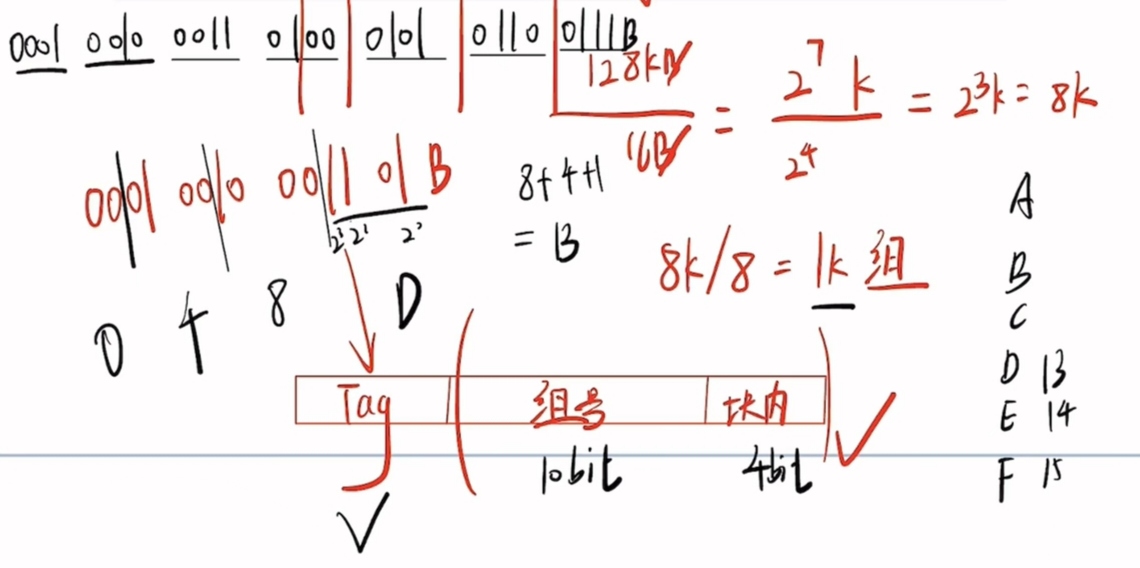 0001 0010 0011 0100 0101 0110 0111B
128KB / 16B = 2^7 k / 2^4 = 2^3 k = 8k
0001 0010 0011 01 B
8+4+1
= B
8k/8 = 1k 组
0 4 8 D
A
B
C
D 13
E 14
F 15
Tag 组号 块内
10bit 4bit